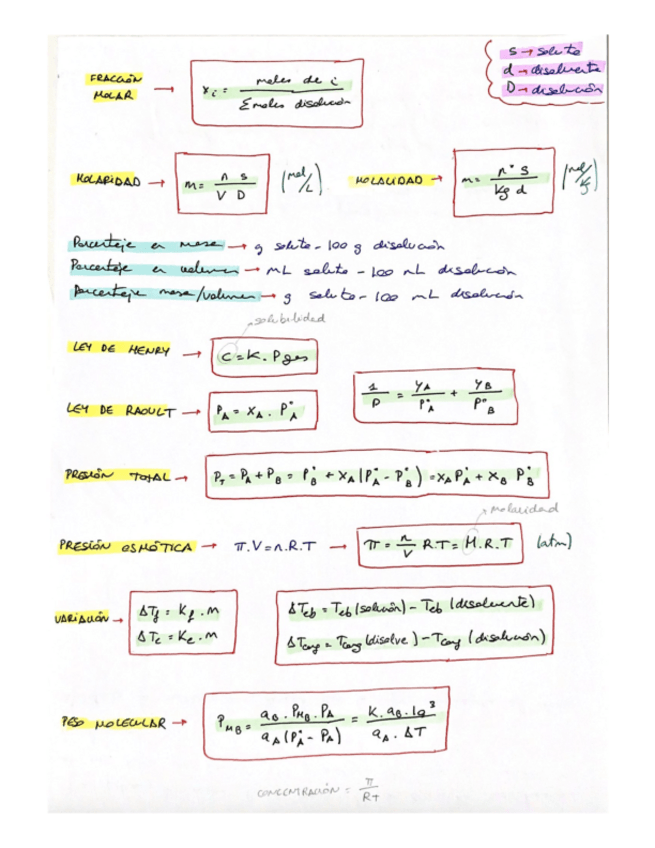 s → soluto
d → disolvente
D → disolución
FRACCIÓN MOLAR → xi = moles de i / Σ moles disolución
MOLARIDAD → m = n s / V D (mol/L) MOLALIDAD → m = nº s / Kg d (mol/Kg)
Porcentaje en masa → g soluto - 100 g disolución
Porcentaje en volumen → mL soluto - 100 mL disolución
Porcentaje masa/volumen → g soluto - 100 mL disolución
solubilidad
LEY DE HENRY → C = K . P gas
1/P = yA/P°A + yB/P°B
LEY DE RAOULT → PA = XA . P°A
PRESIÓN TOTAL → PT = PA + PB = P°B + XA (P°A - P°B) = XA P°A + XB P°B
molaridad
PRESIÓN OSMÓTICA → π.V = n.R.T → π = n/V R.T = M.R.T (atm)
VARIACIÓN → ΔTf = Kf . m ΔTeb = Teb (solución) - Teb (disolvente)
ΔTe = Ke . m ΔTcong = Tcong (disolve) - Tcong (disolución)
PESO MOLECULAR → PMB = aB . PMB . PA / aA (P°A - PA) = K . aB . 10³ / aA . ΔT
CONCENTRACIÓN = π / RT